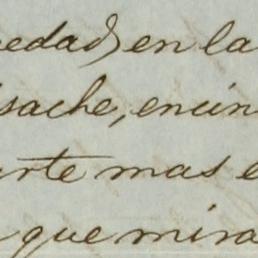 edad) en la
sache, encin
arte mas e
que mira